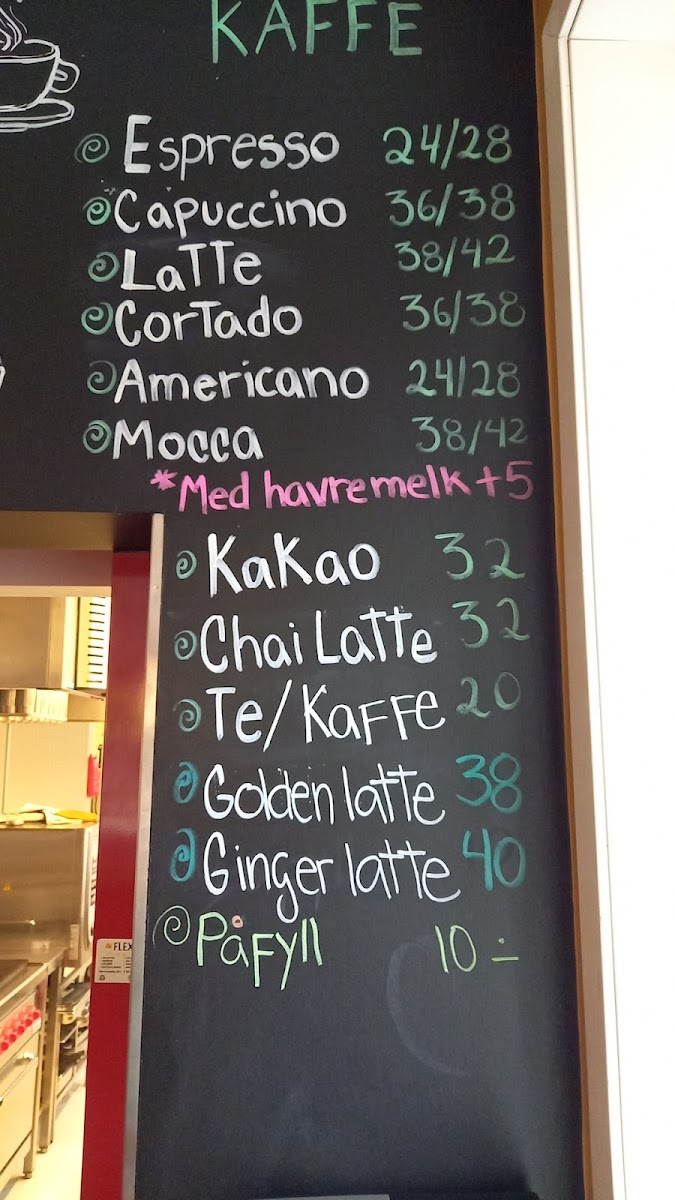 KAFFE
Espresso 24/28
Capuccino 36/38
Latte 38/42
Cortado 36/38
Americano 24/28
Mocca 38/42
*Med havremelk +5
Kakao 32
Chai Latte 32
Te/Kaffe 20
Golden latte 38
Ginger latte 40
Påfyll 10 ÷
FLEX